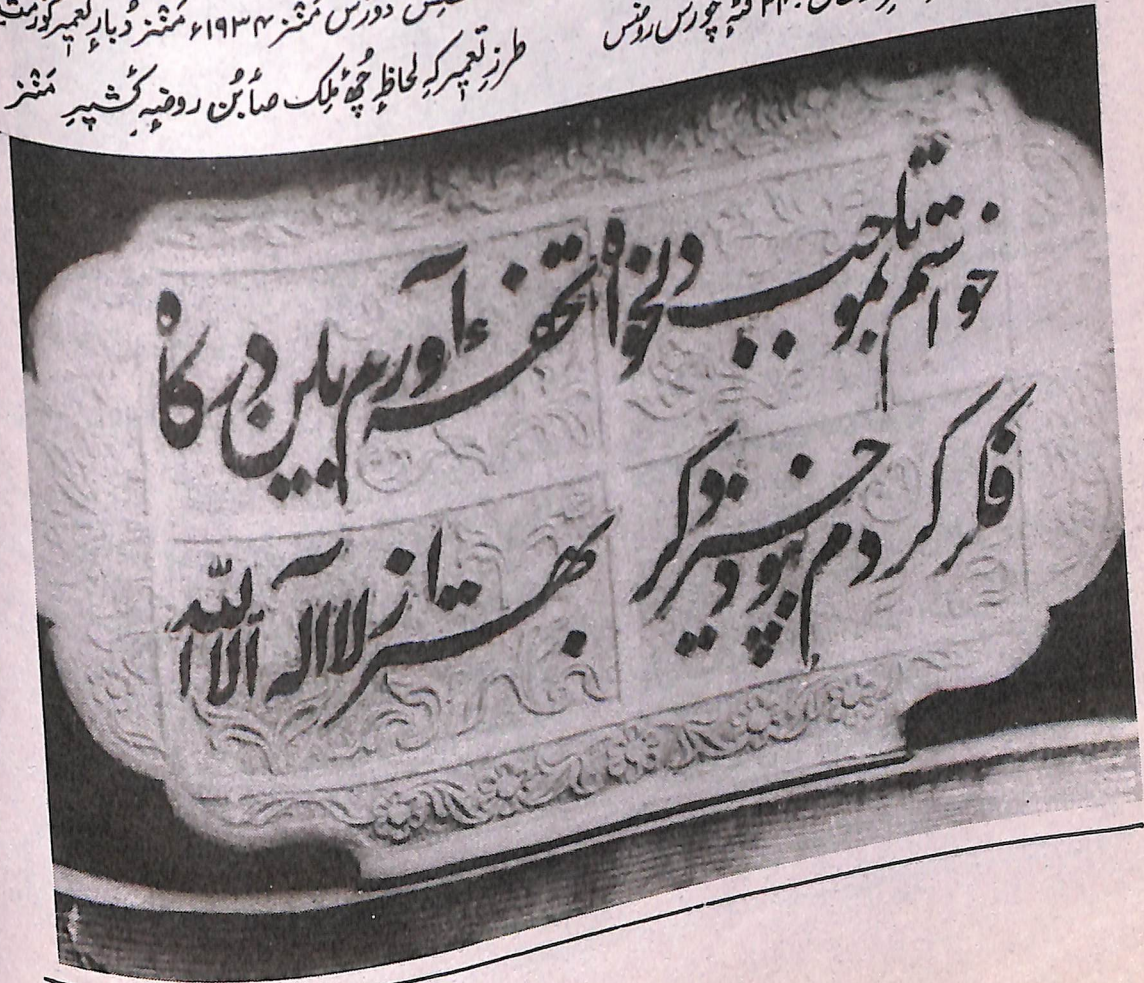 دورس منٛز ۱۹۳۴ء منٛز دُبارٕ تعمیر
فٹہٕ چورس روضس
طرزِ تعمیر کہِ لحاظٕ چُھ مَلِک صٲبُن روضہٕ کٔشیٖرِ منٛز
خواستم تا بموجب دلخواہ تحفۂ آورم باین درگاہ
فکر کردم چو بود خیر دگر بہتر از لا الہ الا اللہ